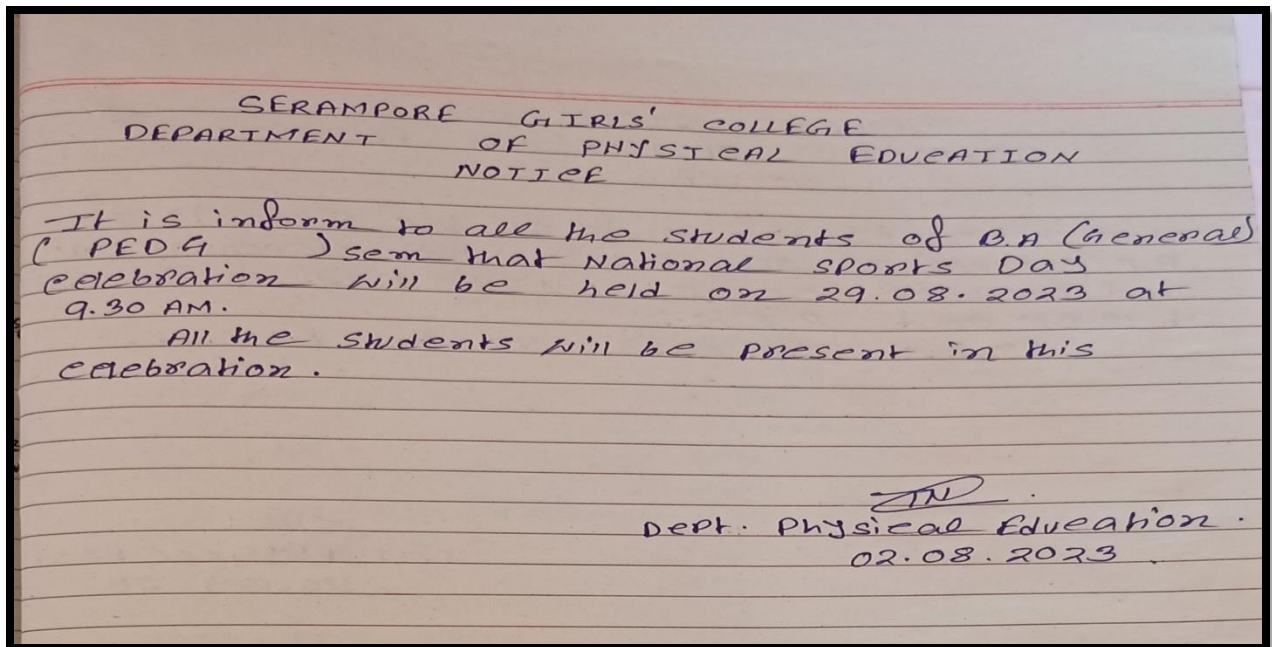 SERAMPORE GIRLS' COLLEGE
DEPARTMENT OF PHYSICAL EDUCATION
NOTICE
It is inform to all the students of B.A (General)
( PEDG ) sem that National sports Day
celebration will be held on 29.08.2023 at
9.30 AM.
All the students will be present in this
celebration.
Dept. Physical Education.
02.08.2023